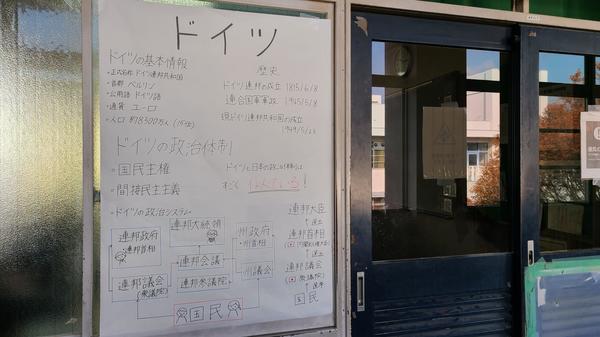 ドイツ
ドイツの基本情報
・正式名称 ドイツ連邦共和国
・首都 ベルリン
・公用語 ドイツ語
・通貨 ユーロ
・人口 約8300万人
歴史
ドイツ連邦の成立 1815/6/8
連合国軍軍政 1945/5/8
現ドイツ連邦共和国の成立
1949/5/23
ドイツの政治体制
・国民主権
・間接民主主義
ドイツと日本の政治体制は
すごく にている!
・ドイツの政治システム
連邦政府
・連邦首相
連邦大統領
州政府
・州首相
連邦会議
連邦議会
(衆議院)
連邦参議院
州議会
国民
連邦大臣
↑選出
連邦首相
↑選出
連邦議会
(衆議院)
↑選挙
国民